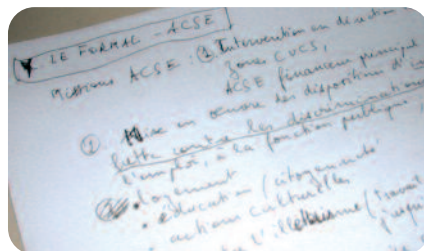 LE FORMAL - ACSE
Missions ACSE : ① Intervention en direction
zones CUCS,
ACSE financeur principal
② Mise en oeuvre des dispositifs d'in
lutte contre les discriminations
l'emploi, à la fonction publique,
logement
• éducation / citoyenneté
• actions culturelles
l'illettrisme (travail